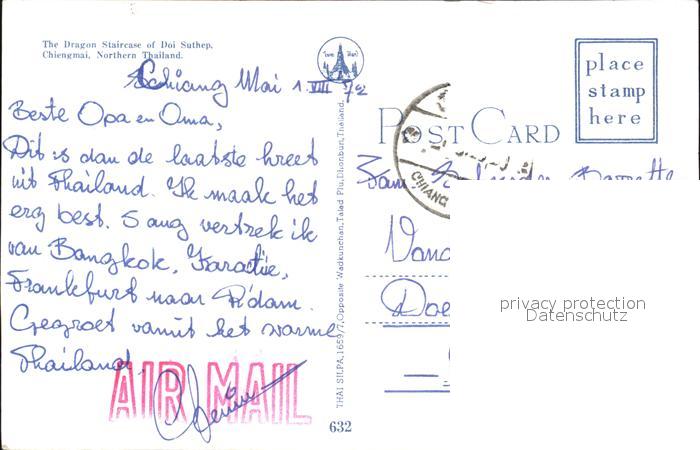 The Dragon Staircase of Doi Suthep,
Chiengmai, Northern Thailand.
Chiang Mai 1 VIII
Beste Opa en Oma,
Dit is dan de laatste kreet
uit Thailand. Ik maak het
erg best. 5 aug vertrek ik
van Bangkok, Karatie,
Frankfurt naar R'dam.
Gegroet vanuit het warme
Thailand.
AIR MAIL
THAI SILPA, 1659/7, Opposite Wadkunchan, Talad Plu, Dhonburi, Thailand.
632
POST CARD
place
stamp
here
CHIANG
privacy protection
Datenschutz